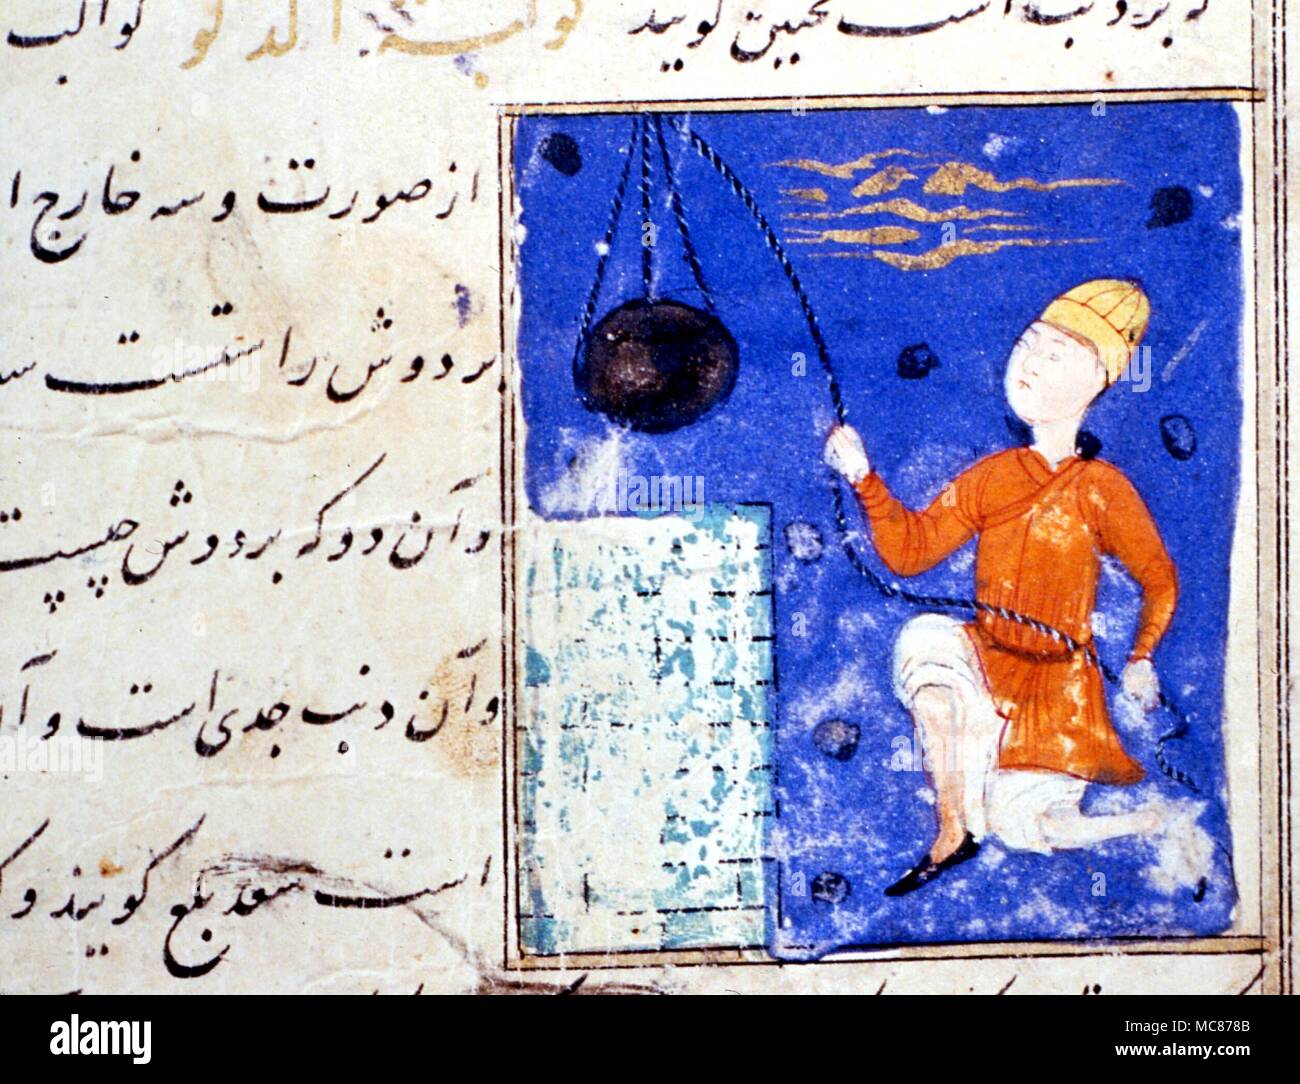 که بر ذنب است محبین گویند کوکبة الدلو کواکب
از صورت و سه خارج ا
بر دوش راستست
و آن دو که بر دوش چپست
و آن ذنب جدی است و آ
است سعد بلع گویند و
alamy
Image ID: MC878B
www.alamy.com